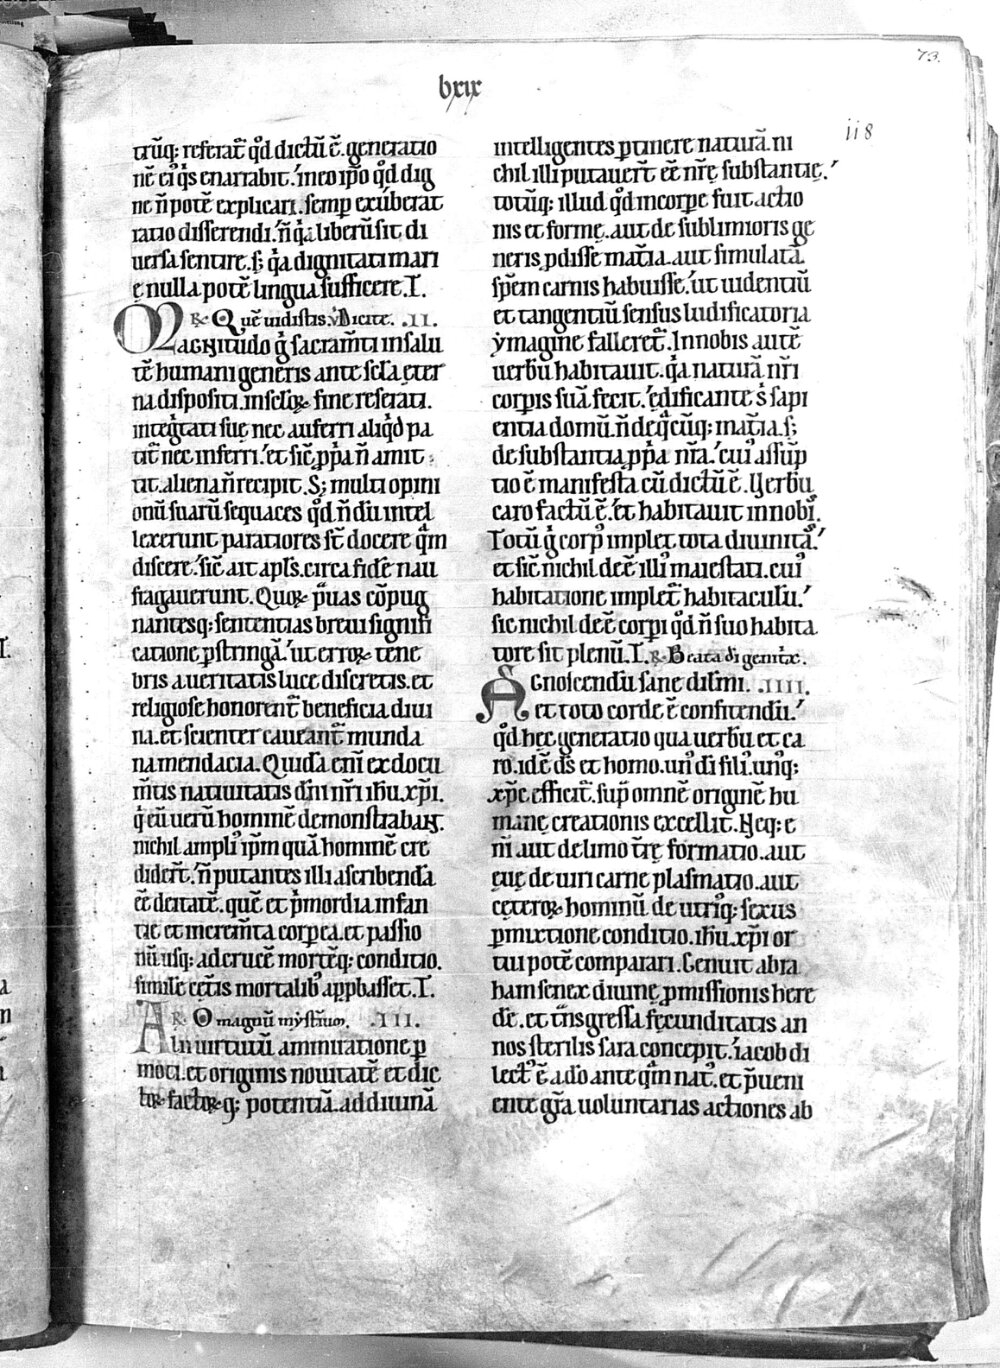 73.
lxix
118
trūq; referat᷑ qđ dictū ē. generatio
nē ei᷒ qͥs enarrabit.' in eo ip̄o qđ dig
ne n̄ potē explicari. semp̱ exuberat
ratio disserendi. n̄ qͥa liberū sit di
uersa sentire. s; qͥa dignitati mari
ę nulla potē lingua sufficere. T.
R. Quē uidistis. V̄ Dicite. .II.
MAGNItudo gͥ sacram̄ti in salu
tē humani generis ante sc̄la eter
na dispositi. in sc̄loꝝ fine reserati.
integͥtati suę nec auferri aliqͥd pa
tit᷑ nec inferri.' et sic̄ p̱pͥa n̄ amit
tit. aliena n̄ recipit. S; multi opini
onū suarū sequaces qđ n̄dū intel
lexerunt paratiores st̄ docere qͣm
discere.' sic̄ ait apl̄s. circa fidē nau
fragauerunt. Quoꝝ p̄uas cōpug
nantesq; sententias breui signifi
catione p̱stringā.' ut erroꝝ tene
bris a ueritatis luce discretis. et
religiose honorent᷑ beneficia diui
na. et scienter caueant᷑ munda
na mendacia. Quidā eni᷒ ex docu
m̄tis natiuitatis dn̄i nr̄i ihu. xp̄i.
qͥ eū uerū hominē demonstrabant.
nichil ampli᷒ ip̄m quā hominē cre
didert̄. n̄ putantes illi ascribendā
eē deitatē. quē et pͥmordia infan
tie et increm̄ta corp̱ea. et passio
nū usq; ad crucē mortēq; conditio.
similē cet̄is mortalib᷒ app̱basset. T.
R. O magnū mysteriū. .III.
Alii uirtutū ammiratione p̱
moti. et originis nouitatē et dic
toꝝ factoꝝq; potentiā. ad diuinā
intelligentes p̱tinere naturā. ni
chil illi putauert̄ eē nr̄ę substantię.'
totūq; illud qđ in corp̱e fuit actio
nis et formę. aut de sublimioris ge
neris p̱disse mat̄ia. aut simulatā
sp̄em carnis habuisse.' ut uidentiū
et tangentiū sensus ludificatoria
ymagine falleret᷑. In nobis autē
uerbū habitauit. qͥa naturā nr̄i
corporis suā fecit.' ędificante sͥ sapi
entia domū. n̄ de qͣcūq; mat̄ia. s;
de substantia p̱pͥa nr̄a.' cui᷒ assūp
tio ē manifesta cū dictū ē. Verbū
caro factū ē.' et habitauit in nobis.
Totū gͥ corp᷒ implet tota diuinitas.'
et sic̄ nichil deē illi᷒ maiestati. cui᷒
habitatione implet᷑ habitaculū.'
sic nichil deē corp̱i qđ n̄ suo habita
tore sit plenū. T. R. Beata di genitꝝ.
AGnoscendū sane dil̄mi. .IIII.
et toto corde ē confitendū.'
qđ hęc generatio qua uerbū et ca
ro. idē ds̄ et homo. un᷒ di᷒ fili᷒. un᷒q;
xp̄c efficit᷑. sup̱ omnē originē hu
manę creationis excellit. Neq; e
ni᷒ aut de limo t̄rę formatio. aut
euę de uiri carne plasmatio. aut
ceteroꝝ hominū de utriq; sexus
p̱mixtione conditio. ihu. xp̄i or
tui potē comparari. Genuit abra
ham senex diuinę p̱missionis here
dē. et t̄nsgressa fecunditatis an
nos sterilis sara concepit. iacob di
lect᷒ ē a dō ante qͣm nat᷒. et p̄ueni
ente gr̄a uoluntarias actiones ab